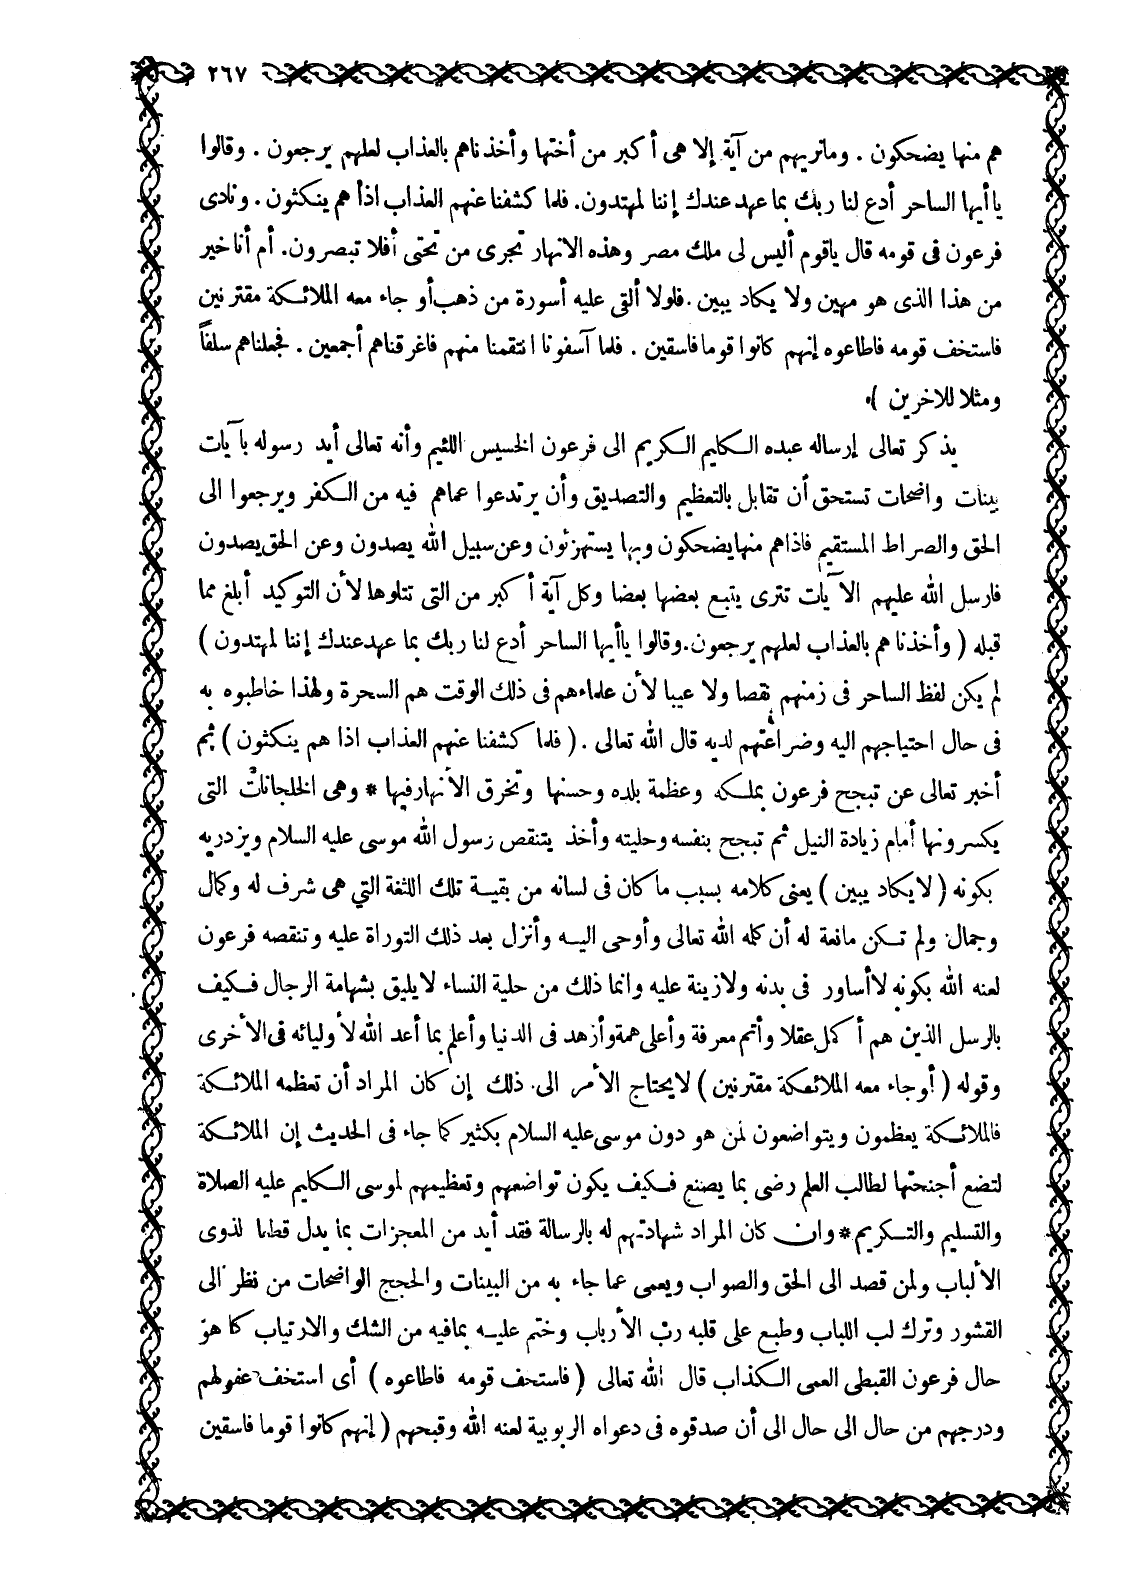 ٢٦٧
هم منها يضحكون . ومانريهم من آية إلا هى أكبر من أختها وأخذناهم بالعذاب لعلهم يرجعون . وقالوا
ياأيها الساحر أدع لنا ربك بما عهد عندك إننا لمهتدون. فلما كشفنا عنهم العذاب اذأ هم ينكثون . ونادى
فرعون فى قومه قال ياقوم أليس لى ملك مصر وهذه الانهار تجرى من تحتى أفلا تبصرون. أم أنا خير
من هذا الذى هو مهين ولا يكاد يبين . فلولا ألقى عليه أسورة من ذهب أو جاء معه الملائكة مقترنين
فاستخف قومه فاطاعوه إنهم كانوا قوما فاسقين . فلما آسفونا انتقمنا منهم فاغرقناهم أجمعين . فجعلناهم سلفاً
ومثلا للاخرين ).
يذكر تعالى إرساله عبده الكليم الكريم الى فرعون الخسيس اللئيم وأنه تعالى أيد رسوله بآيات
بينات واضحات تستحق أن تقابل بالتعظيم والتصديق وأن يرتدعوا عماهم فيه من الكفر ويرجعوا الى
الحق والصراط المستقيم فاذاهم منها يضحكون وبها يستهزئون وعن سبيل الله يصدون وعن الحق يصدون
فارسل الله عليهم الآيات تترى يتبع بعضها بعضا وكل آية أكبر من التى تتلوها لأن التوكيد أبلغ مما
قبله ( وأخذناهم بالعذاب لعلهم يرجعون.وقالوا ياأيها الساحر أدع لنا ربك بما عهد عندك إننا لمهتدون )
لم يكن لفظ الساحر فى زمنهم نقصا ولا عيبا لأن علماءهم فى ذلك الوقت هم السحرة ولهذا خاطبوه به
فى حال احتياجهم اليه وضراعتهم لديه قال الله تعالى . ( فلما كشفنا عنهم العذاب اذا هم ينكثون ) ثم
أخبر تعالى عن تبجح فرعون بملكه وعظمة بلده وحسنها وتخرق الأنهارفيها * وهى الخلجانات التى
يكسرونها أمام زيادة النيل ثم تبجح بنفسه وحليته وأخذ يتنقص رسول الله موسى عليه السلام ويزدريه
بكونه ( لايكاد يبين ) يعنى كلامه بسبب ما كان فى لسانه من بقية تلك اللثغة التي هى شرف له وكمال
وجمال ولم تكن مانعة له أن كلمه الله تعالى وأوحى اليه وأنزل بعد ذلك التوراة عليه وتنقصه فرعون
لعنه الله بكونه لاأساور فى بدنه ولازينة عليه وانما ذلك من حلية النساء لايليق بشهامة الرجال فكيف
بالرسل الذين هم أكمل عقلا وأتم معرفة وأعلى همة وأزهد فى الدنيا وأعلم بما أعد الله لأوليائه فى الأخرى
وقوله ( أوجاء معه الملائكة مقترنين ) لايحتاج الأمر الى ذلك إن كان المراد أن تعظمه الملائكة
فالملائكة يعظمون ويتواضعون لمن هو دون موسى عليه السلام بكثير كما جاء فى الحديث إن الملائكة
لتضع أجنحتها لطالب العلم رضى بما يصنع فكيف يكون تواضعهم وتعظيمهم لموسى الكليم عليه الصلاة
والتسليم والتكريم * وان كان المراد شهادتهم له بالرسالة فقد أيد من المعجزات بما يدل قطعا لذوى
الألباب ولمن قصد الى الحق والصواب ويعمى عما جاء به من البينات والحجج الواضحات من نظر الى
القشور وترك لب اللباب وطبع على قلبه رب الأرباب وختم عليه بمافيه من الشك والارتياب كما هو
حال فرعون القبطى العمى الكذاب قال الله تعالى ( فاستخف قومه فاطاعوه ) أى استخف عقولهم
ودرجهم من حال الى حال الى أن صدقوه فى دعواه الربوبية لعنه الله وقبحهم ( إنهم كانوا قوما فاسقين